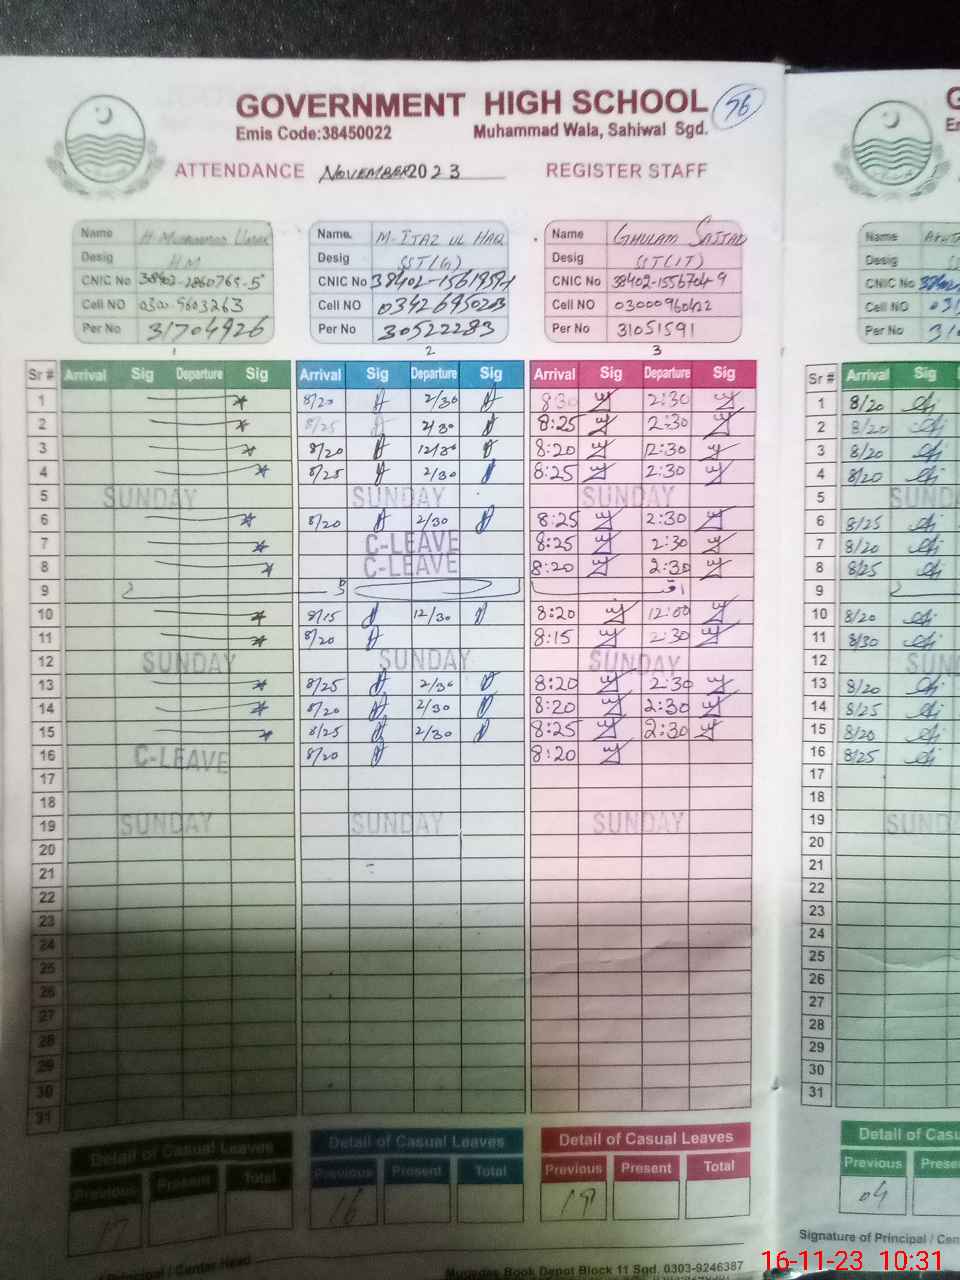 GOVERNMENT HIGH SCHOOL 76
Emis Code:38450022 Muhammad Wala, Sahiwal Sgd.
ATTENDANCE NOVEMBER 2023 REGISTER STAFF
Name Name. M-IJAZ UL HAQ Name GHULAM SAJJAD Name
Desig HM Desig SST(G) Desig SST(IT) Desig
CNIC No CNIC No CNIC No 38402-1556704-9 CNIC No
Cell NO 0300-9603263 Cell NO 03426950203 Cell NO 03000960422 Cell NO
Per No 31704926 Per No 30522283 Per No 31051591 Per No
1 2 3
Sr # Arrival Sig Departure Sig Arrival Sig Departure Sig Arrival Sig Departure Sig Sr # Arrival Sig
1 8/20 2/30 8:30 2:30 1 8/20
2 8/25 2/30 8:25 2:30 2 8/20
3 8/20 12/30 8:20 12:30 3 8/20
4 8/25 2/30 8:25 2:30 4 8/20
5 SUNDAY SUNDAY SUNDAY 5
6 8/20 2/30 8:25 2:30 6 8/25
7 C-LEAVE 8:25 2:30 7 8/20
8 C-LEAVE 8:20 2:30 8 8/25
9 9
10 8/15 12/30 8:20 12:00 10 8/20
11 8/20 8:15 2:30 11 8/30
12 SUNDAY SUNDAY SUNDAY 12
13 8/25 2/30 8:20 2:30 13 8/20
14 8/20 2/30 8:20 2:30 14 8/25
15 8/25 2/30 8:25 2:30 15 8/20
16 C-LEAVE 8/20 8:20 16 8/25
17 17
18 18
19 SUNDAY SUNDAY SUNDAY 19
20 20
21 21
22 22
23 23
24 24
25 25
26 26
27 27
28 28
29 29
30 30
31 31
Detail of Casual Leaves Detail of Casual Leaves Detail of Casual Leaves
Previous Present Total Previous Present Total Previous Present Total Previous
17 16 04
Principal / Center Head Signature of Principal /
Muqedas Book Depot Block 11 Sgd. 0303-9246387
16-11-23 10:31